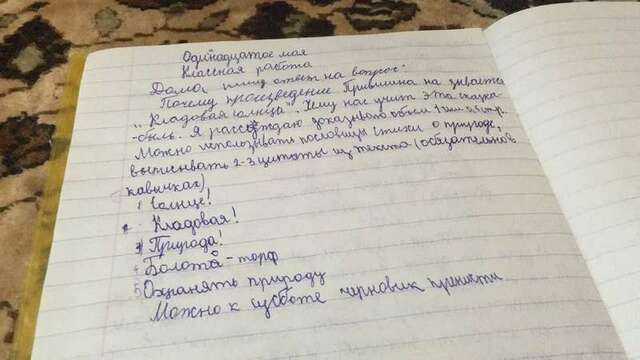 Одинадцатое мая
Классная работа
Дома, пишу ответ на вопрос:
Почему произведение Пришвина на зывается
"Кладовая солнца". Чему нас учит эта сказка
-быль. Я рассуждаю доказываю объём 1 или 2 стр.
Можно использывать пословицы стихи о природе,
выписывать 2-3 цитаты из текста (обязательно в
кавычках)
1 Солнце!
2 Кладовая!
3 Природа!
4 Болото - торф
5 Охранять природу
Можно к субботе черновик принести